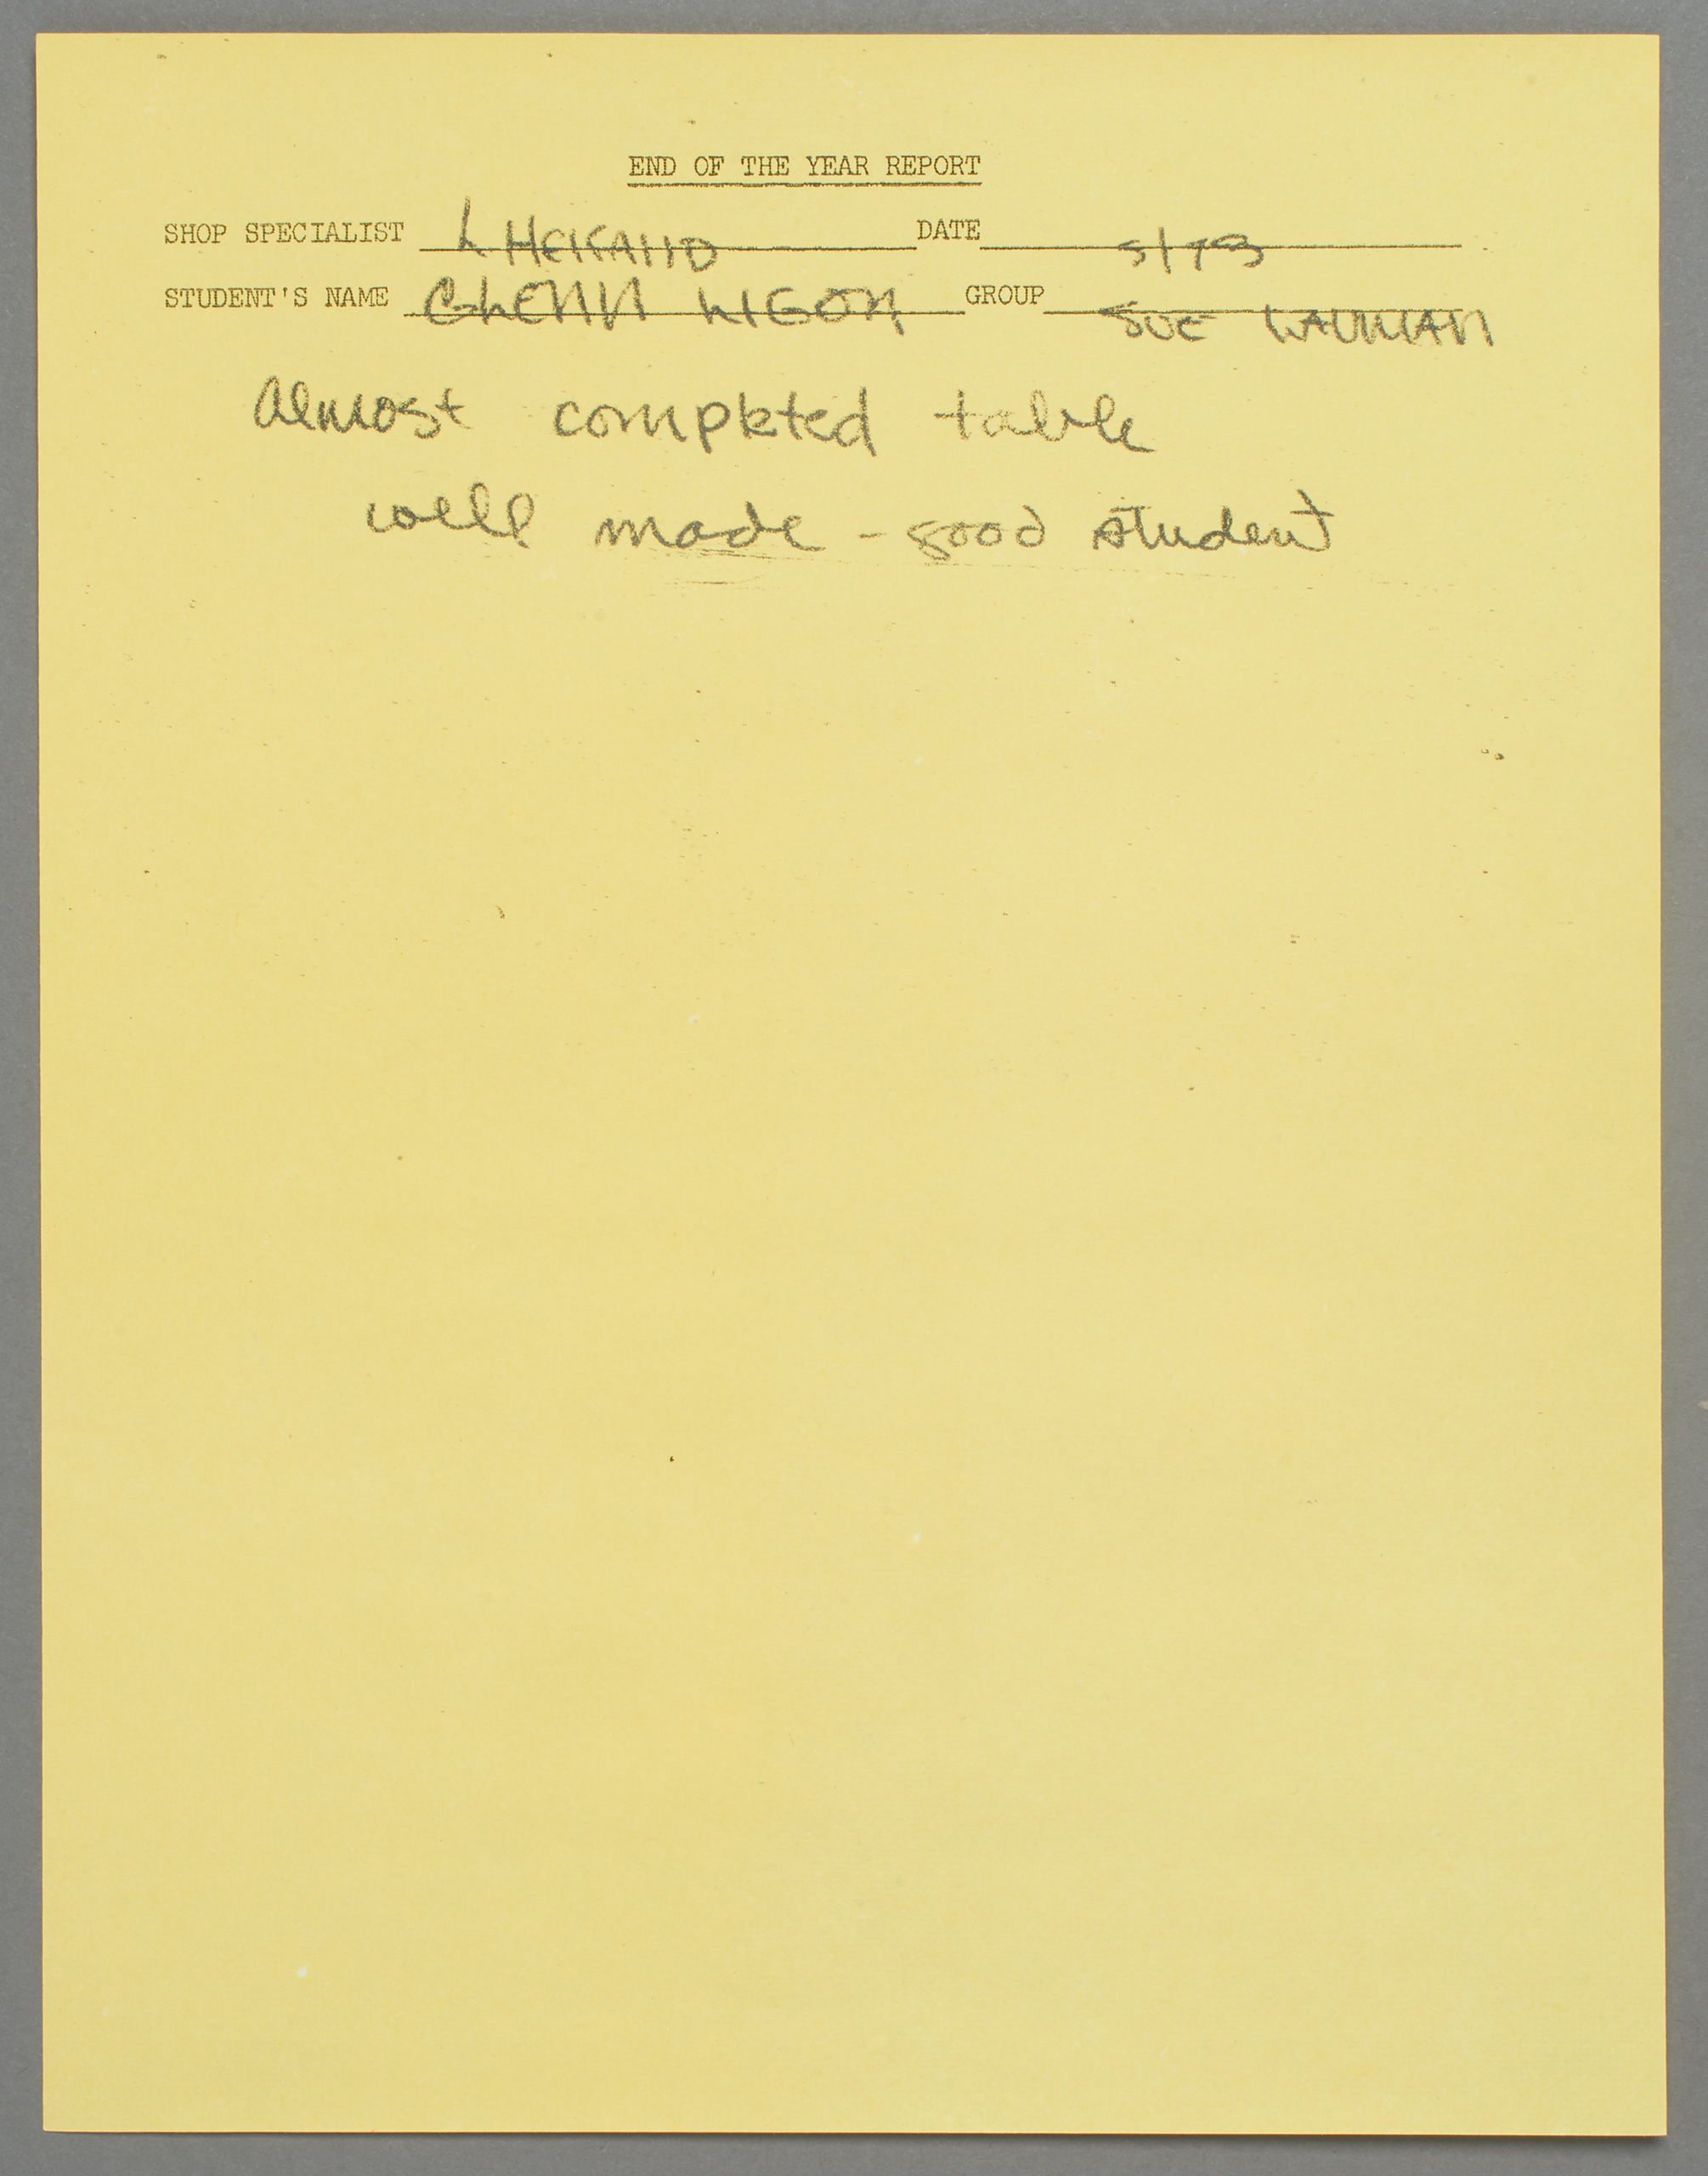 END OF THE YEAR REPORT
SHOP SPECIALIST L DATE 5/73
STUDENT'S NAME GLENN LIGON GROUP SUE
Almost completed table
well made - good student